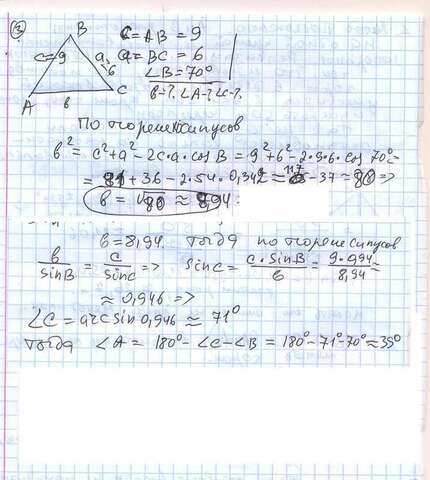 ③
B
c=9 a=6
A в C
c = AB = 9
a = BC = 6
∠B = 70°
в-?, ∠A-? ∠C-?
По теореме косинусов
в² = c² + a² - 2c·a·cos B = 9² + 6² - 2·9·6·cos 70° =
= 81 + 36 - 2·54·0,342 ≈ 117 - 37 = 80 =>
в = √80 ≈ 8,94.
в = 8,94. Тогда по теореме синусов
в/sin B = c/sin C => sin C = c·sin B/в = 9·0,94/8,94 ≈
≈ 0,946 =>
∠C = arcsin 0,946 ≈ 71°
Тогда ∠A = 180° - ∠C - ∠B = 180° - 71° - 70° ≈ 39°